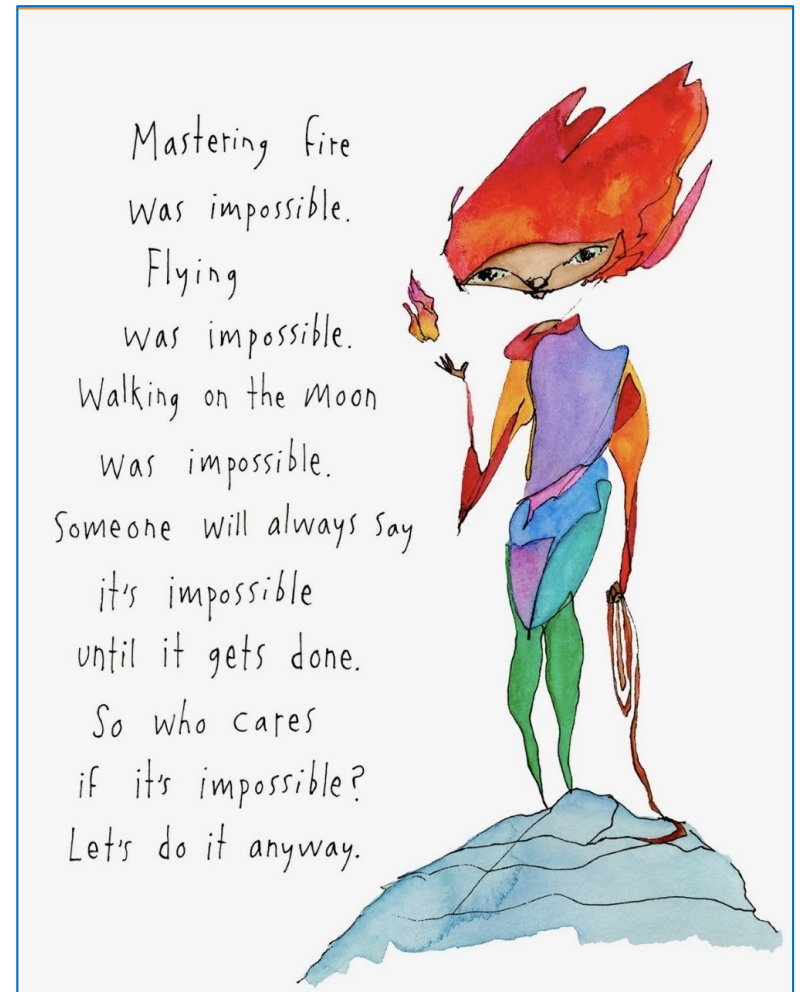 Mastering fire
was impossible.
Flying
was impossible.
Walking on the Moon
was impossible.
Someone will always say
it's impossible
until it gets done.
So who cares
if it's impossible?
Let's do it anyway.